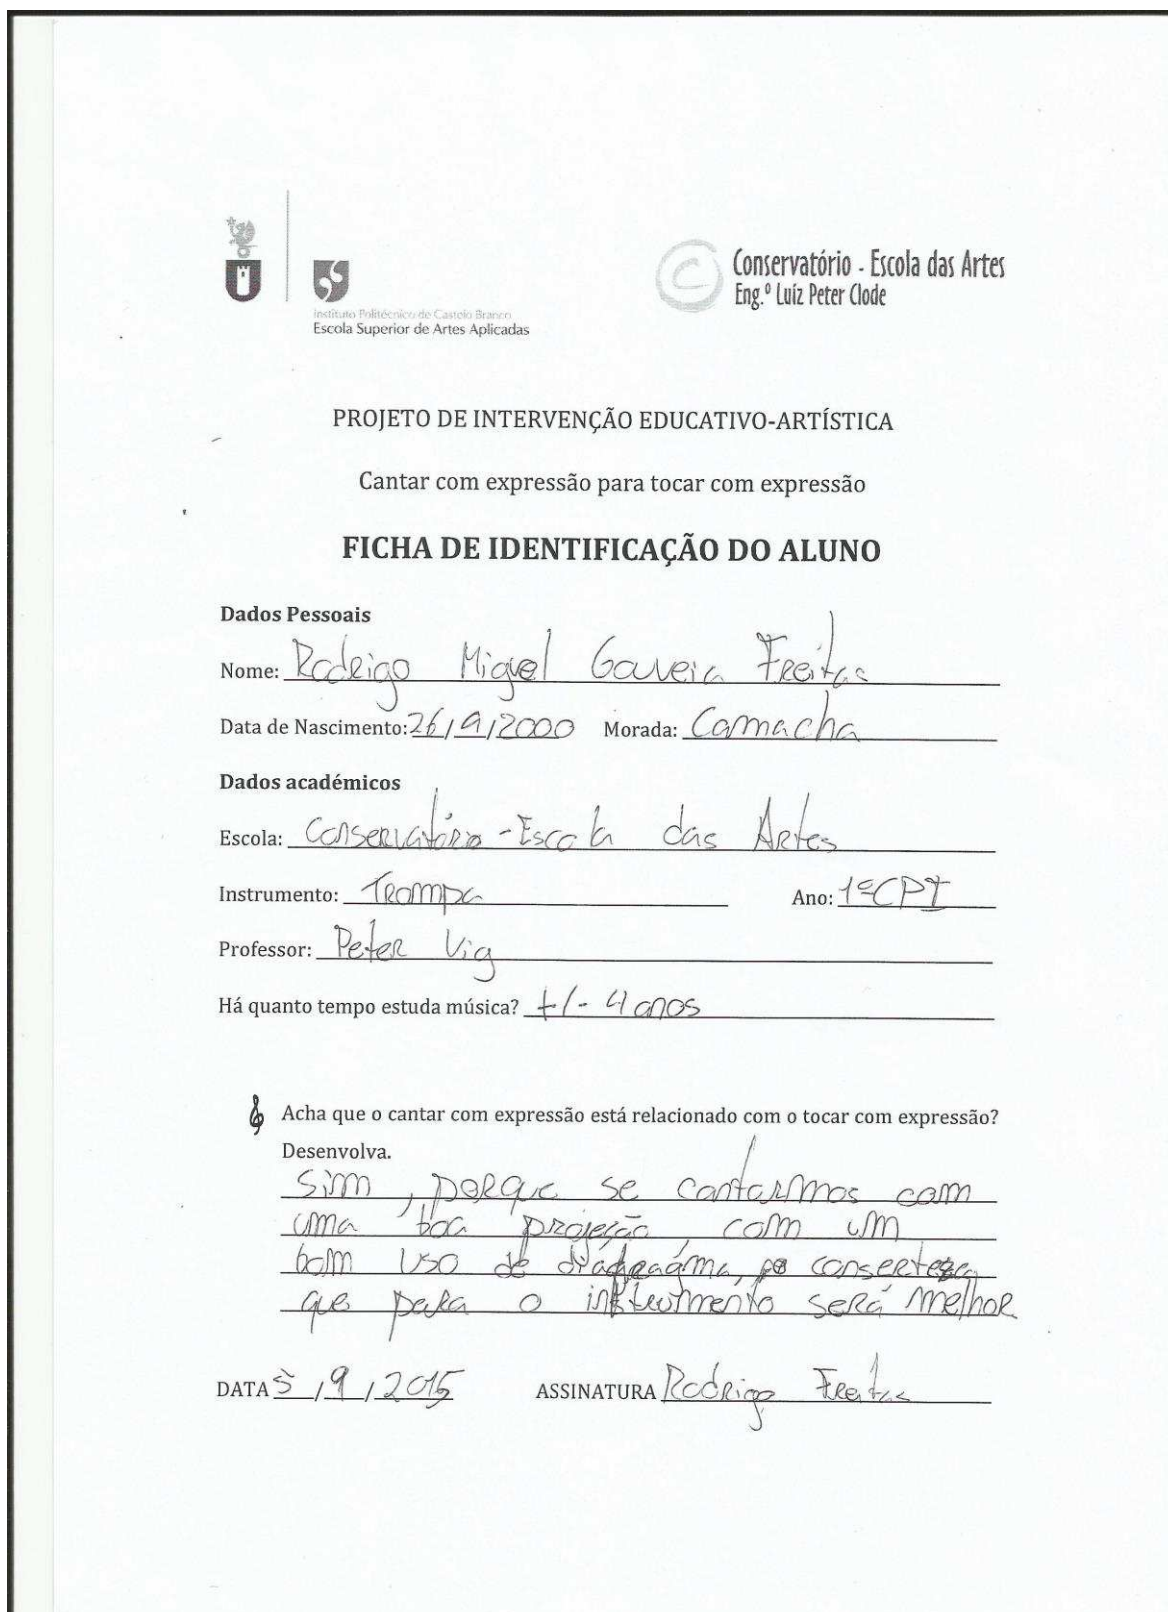 Instituto Politécnico de Castelo Branco
Escola Superior de Artes Aplicadas
Conservatório - Escola das Artes
Eng.º Luíz Peter Clode
PROJETO DE INTERVENÇÃO EDUCATIVO-ARTÍSTICA
Cantar com expressão para tocar com expressão
FICHA DE IDENTIFICAÇÃO DO ALUNO
Dados Pessoais
Nome: Rodrigo Miguel Gouveia Freitas
Data de Nascimento: 26/9/2000 Morada: Camacha
Dados académicos
Escola: Conservatório - Escola das Artes
Instrumento: Trompa Ano: 1º CPI
Professor: Peter Vig
Há quanto tempo estuda música? +/- 4 anos
Acha que o cantar com expressão está relacionado com o tocar com expressão?
Desenvolva.
Sim, porque se cantarmos com
uma boa projeção, com um
bom uso de diafragma, conserteza
que para o instrumento será melhor
DATA 5/9/2015 ASSINATURA Rodrigo Freitas